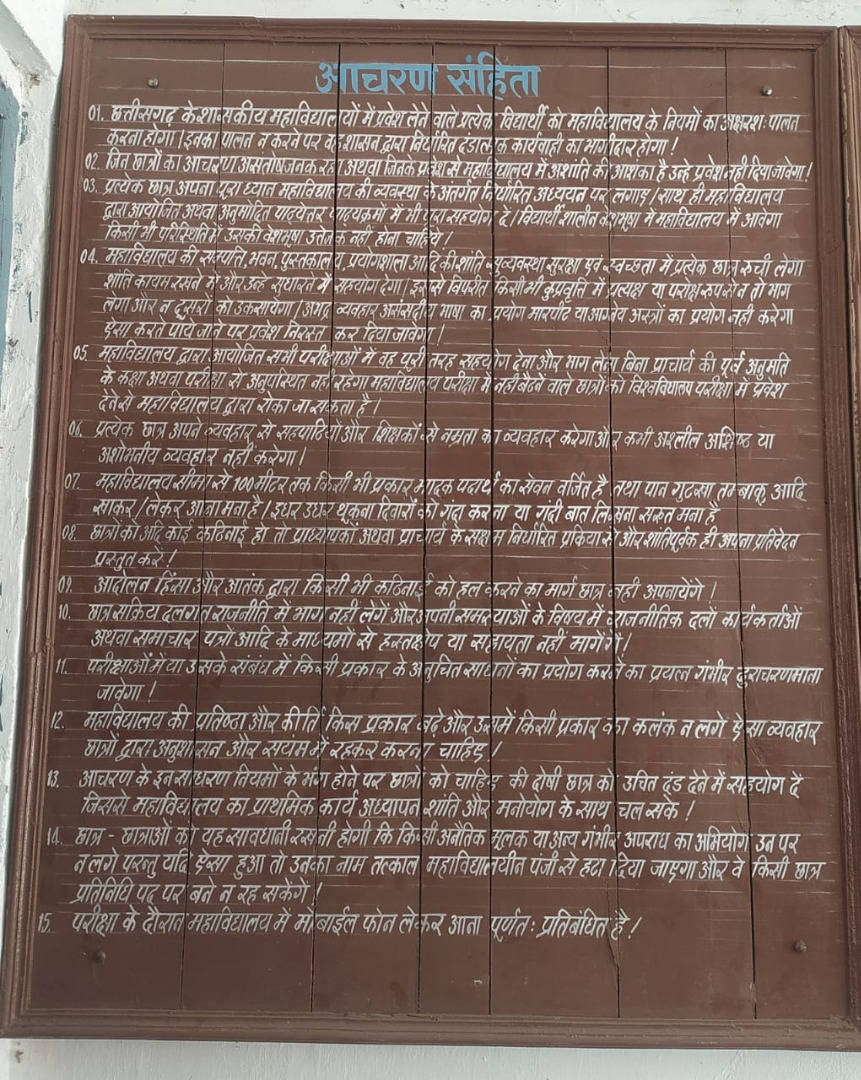 आचरण संहिता
01. छत्तीसगढ़ के शासकीय महाविद्यालयों में प्रवेश लेने वाले प्रत्येक विद्यार्थी को महाविद्यालय के नियमों का अक्षरशः पालन
करना होगा। इनका पालन न करने पर वह शासन द्वारा निर्धारित दंडात्मक कार्यवाही का भागीदार होगा!
02. जिन छात्रों का आचरण असंतोषजनक रहा अथवा जिनके प्रवेश से महाविद्यालय में अशांति की आशंका है उन्हे प्रवेश नहीं दिया जावेगा!
03. प्रत्येक छात्र अपना पूरा ध्यान महाविद्यालय की व्यवस्था के अंतर्गत निर्धारित अध्ययन पर लगाए। साथ ही महाविद्यालय
द्वारा आयोजित अथवा अनुमोदित पाठ्येत्तर पाठ्यक्रमों में भी पूरा सहयोग दे। विद्यार्थी शालीन वेशभूषा में महाविद्यालय में आवेगा
किसी भी परिस्थिति में उसकी वेशभूषा उत्तेजक नहीं होना चाहिये!
04. महाविद्यालय की सम्पत्ति, भवन, पुस्तकालय, प्रयोगशाला आदि की शांति सुव्यवस्था सुरक्षा एवं स्वच्छता में प्रत्येक छात्र रुची लेगा
शांति कायम रखने में और उन्हे सुधारने में सहयोग देगा। इनसे विपरीत किसी भी कुप्रवृति में प्रत्यक्ष या परोक्ष रूप से न तो भाग
लेगा और न दूसरों को उकसायेगा। अभद्र व्यवहार असंसदीय भाषा का प्रयोग मारपीट या आग्नेय अस्त्रों का प्रयोग नहीं करेगा
ऐसा करते पाये जाने पर प्रवेश निरस्त कर दिया जावेगा!
05. महाविद्यालय द्वारा आयोजित सभी परीक्षाओं में वह पूरी तरह सहयोग देगा और भाग लेगा बिना प्राचार्य की पूर्व अनुमति
के कक्षा अथवा परीक्षा से अनुपस्थित नहीं रहेगा महाविद्यालय परीक्षा में नहीं बैठने वाले छात्रों को विश्वविद्यालय परीक्षा में प्रवेश
देने से महाविद्यालय द्वारा रोका जा सकता है।
06. प्रत्येक छात्र अपने व्यवहार से सहपाठियों और शिक्षकों से नम्रता का व्यवहार करेगा और कभी अश्लील अशिष्ट या
अशोभनीय व्यवहार नहीं करेगा!
07. महाविद्यालय सीमा से 100 मीटर तक किसी भी प्रकार मादक पदार्थ का सेवन वर्जित है तथा पान गुटखा तम्बाकू आदि
खाकर/लेकर आना मना है। इधर उधर थूकना दिवारों को गंदा करना या गंदी बात लिखना सख्त मना है
08. छात्रों को अदि कोई कठिनाई हो तो प्राध्यापकों अथवा प्राचार्य के सक्षम निर्धारित प्रक्रिया से और शांतिपूर्वक ही अपना प्रतिवेदन
प्रस्तुत करे!
09. आदोलन हिंसा और आतंक द्वारा किसी भी कठिनाई को हल करने का मार्ग छात्र नहीं अपनायेंगे।
10. छात्र सक्रिय दलगत राजनीति में भाग नहीं लेगें और अपनी समस्याओं के विषय में राजनीतिक दलों कार्यकर्ताओं
अथवा समाचार पत्रों आदि के माध्यमों से हस्तक्षेप या सहायता नहीं मागेंगें!
11. परीक्षाओं में या उसके संबंध में किसी प्रकार के अनुचित साधनों का प्रयोग करने का प्रयत्न गंभीर दुराचरण माना
जावेगा!
12. महाविद्यालय की प्रतिष्ठा और कीर्ति किस प्रकार बढ़े और उसमें किसी प्रकार का कलंक न लगे ऐसा व्यवहार
छात्रों द्वारा अनुशासन और सयम में रहकर करना चाहिए!
13. आचरण के इन साधरण नियमों के भंग होने पर छात्रों को चाहिए की दोषी छात्र को उचित दंड देने में सहयोग दें
जिससे महाविद्यालय का प्राथमिक कार्य अध्यापन शांति और मनोयोग के साथ चल सके!
14. छात्र - छात्राओं को यह सावधानी रखनी होगी कि किसी अनैतिक मूलक या अन्य गंभीर अपराध का अभियोग उन पर
न लगे परन्तु यदि ऐसा हुआ तो उनका नाम तत्काल महाविद्यालयीन पंजी से हटा दिया जाएगा और वे किसी छात्र
प्रतिनिधि पद पर बने न रह सकेंगे!
15. परीक्षा के दौरान महाविद्यालय में मोबाईल फोन लेकर आना पूर्णतः प्रतिबंधित है!